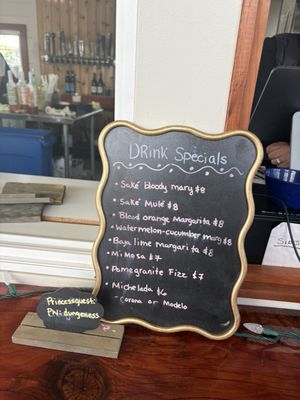 DRink Specials
• Saké bloody mary $8
• Saké Mulé $8
• Blood orange Margarita $8
• watermelon-cucumber mary $8
• Baja lime margarita $8
• Mimosa $7
• Pomegranite Fizz $7
• Michelada $6
• Corona or Modelo
Princessquest
PW: dungeness